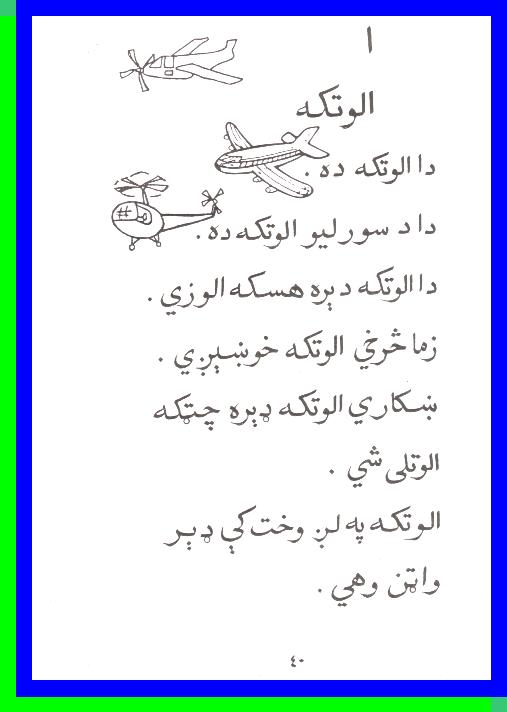 ا
الوتکه
دا الوتکه ده .
دا د سورليو الوتکه ده .
دا الوتکه ډېره هسکه الوزي .
زما څرخي الوتکه خوښېږي .
ښکاري الوتکه ډېره چټکه
الوتلی شي .
الوتکه په لږ وخت کې ډېر
واټن وهي .
٤٠